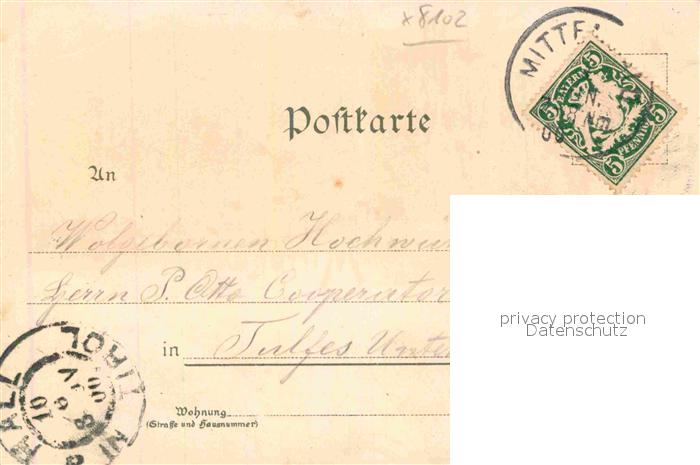 x8102
MITTE
BAYERN
5 5 5 5
PFENNIG
Postkarte
An
Wolgebornen Hochwür
Herrn P. Otto Cooperator
in Tulfes Unte
HALL IN TIROL
10
00
Wohnung
(Straße und Hausnummer)
privacy protection
Datenschutz